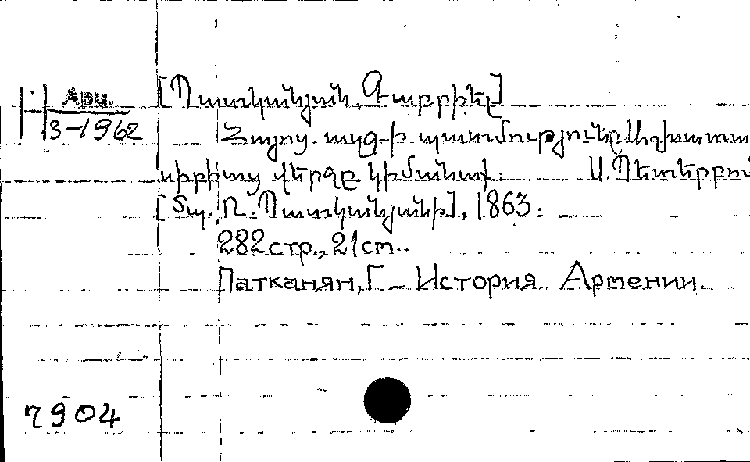 Арм.
3-1962
[Պատկանյան, Գաբրիել]
Հայոց. ազգի պատմությունը. Աշխատա
սիրիտց վերջը կիմանաք. Ս. Պետերբու
[Տպ. Ռ. Պատկանյանի], 1863.
282 стр., 21 cm..
Патканян, Г. - История Армении.
7904